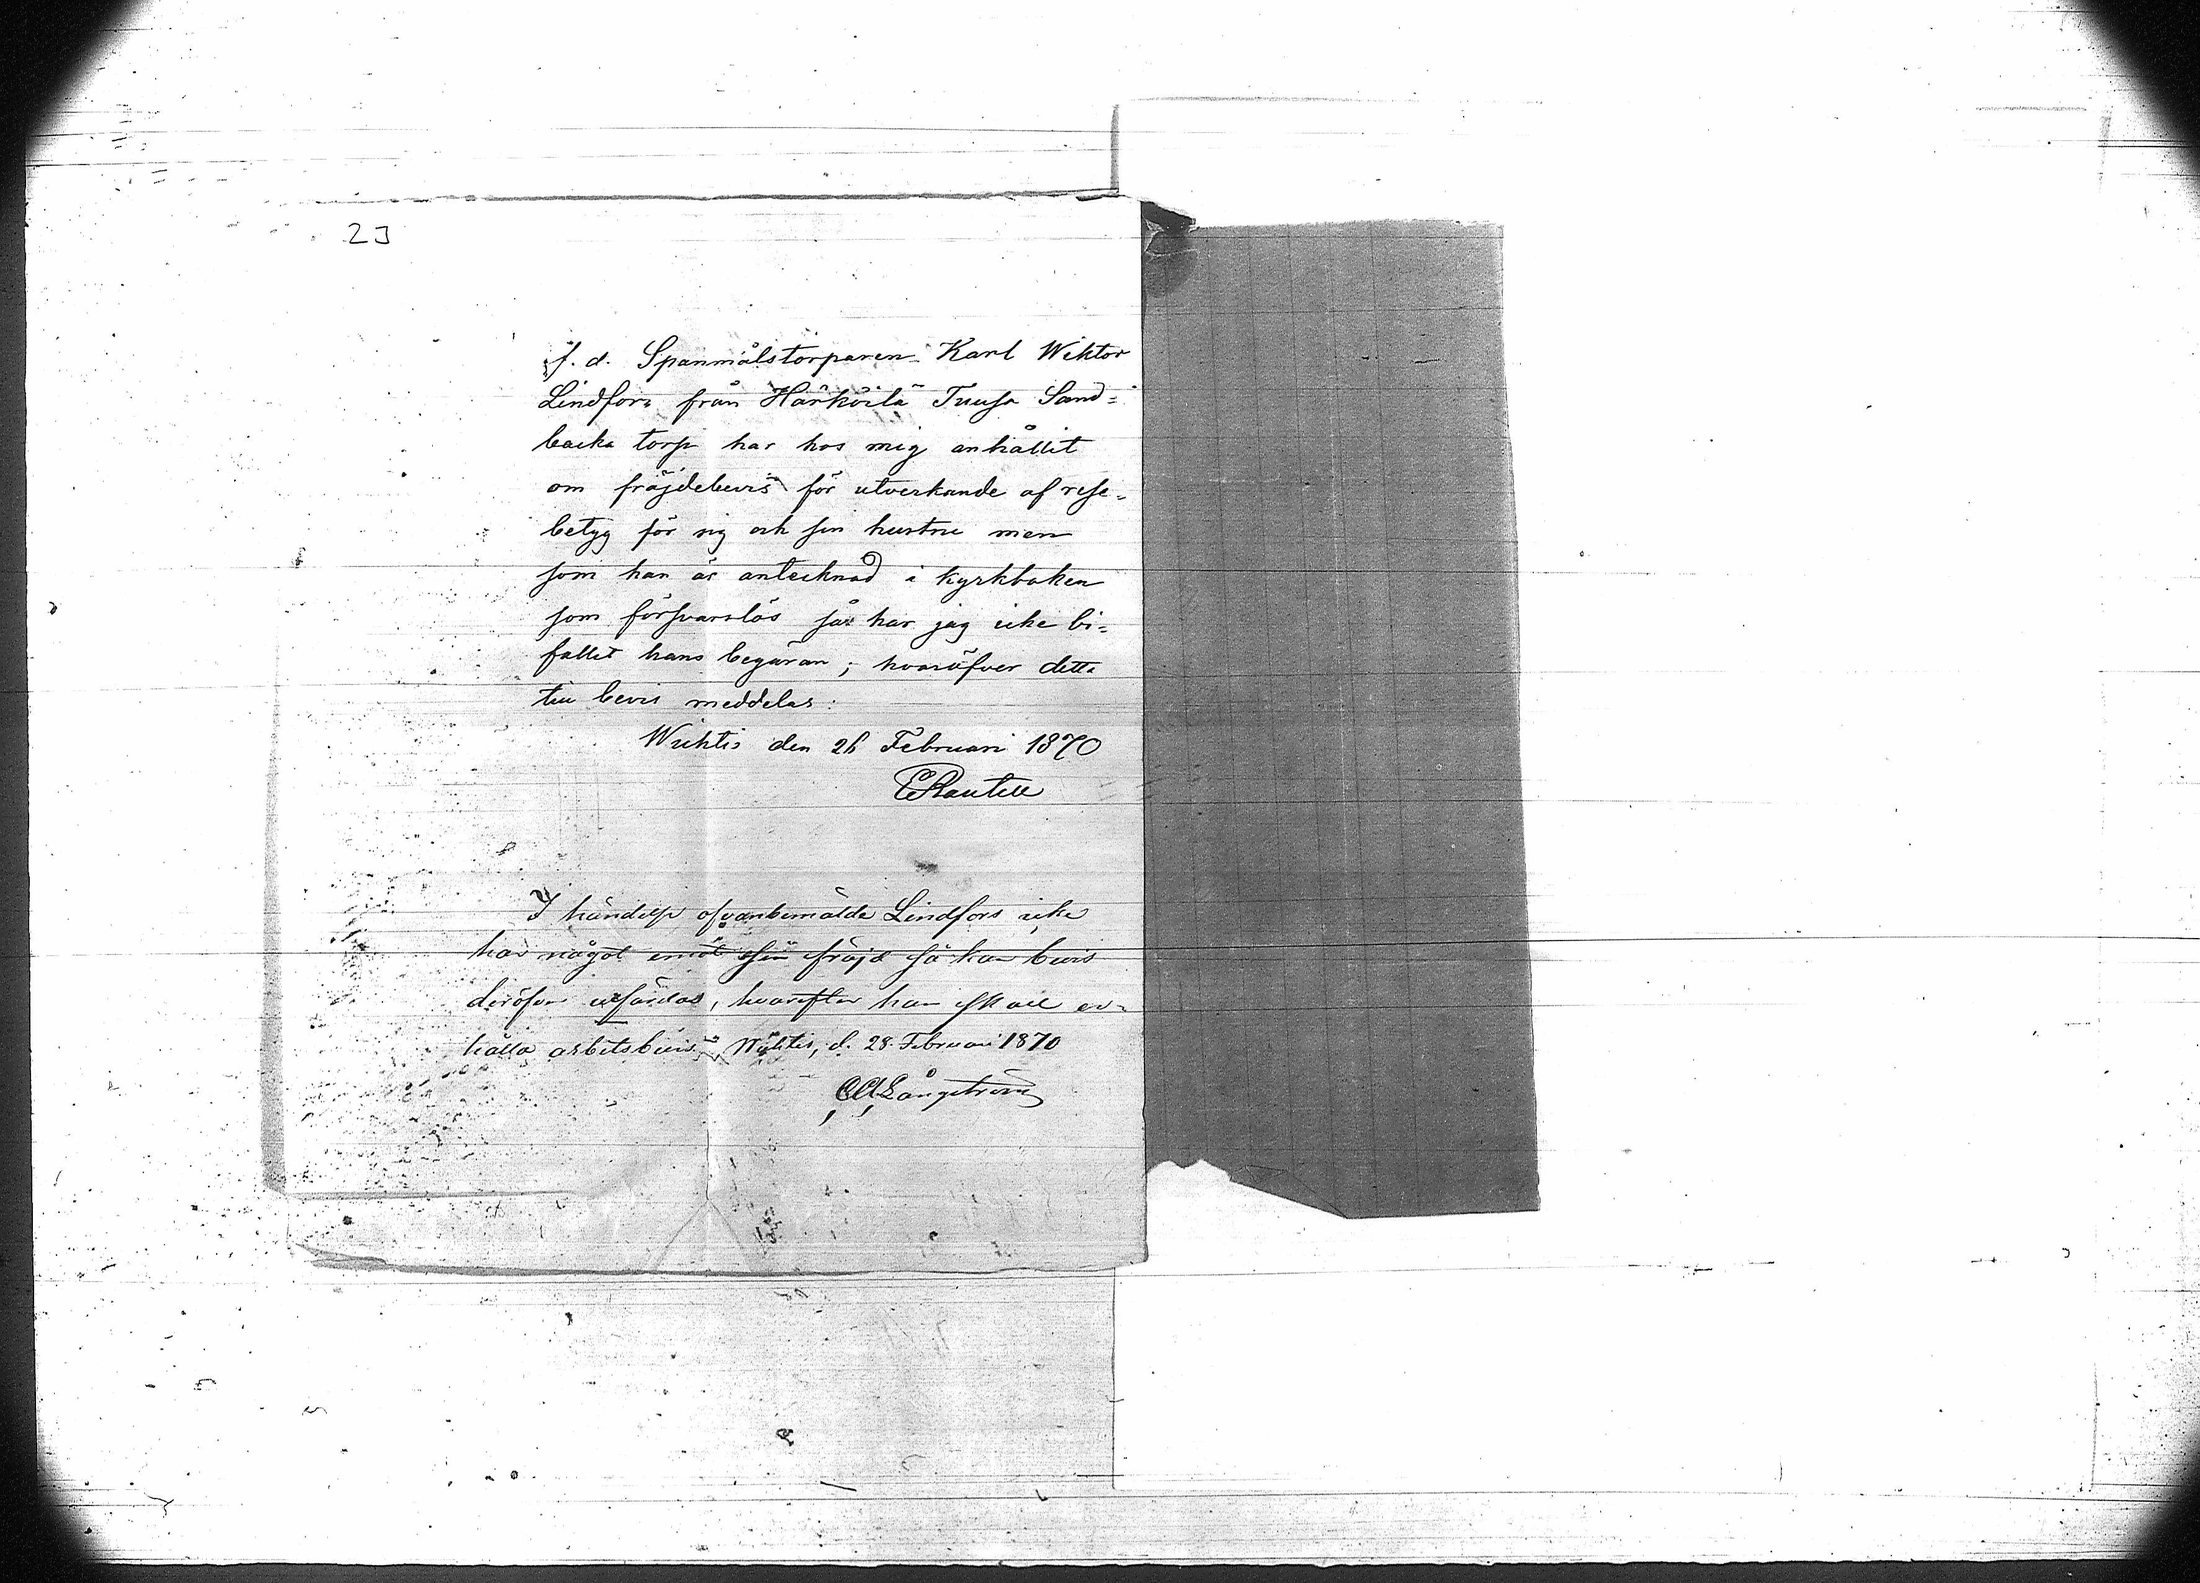 23
f. d. Spanmålstorparen Karl Wiktor
Lindfors från Härköilä Tuusa Sand=
backa torp har hos mig anhållit
om fräjdebevis för utverkande af rese=
betyg för sig och sin hustru men
som han är antecknad i kyrkboken
som försvarslös så har jag icke bi=
fallit hans begäran; hvaröfver detta
till bevis meddelas.
Wichtis den 26 Februari 1870
I händelse ofvanbemälde Lindfors icke
har något emot sin fräjd så kan bevis
deröfver utfärdas, hvarefter han skall er=
hålla arbetsbevis. Wichtis, d. 28. Februari 1870
Långström